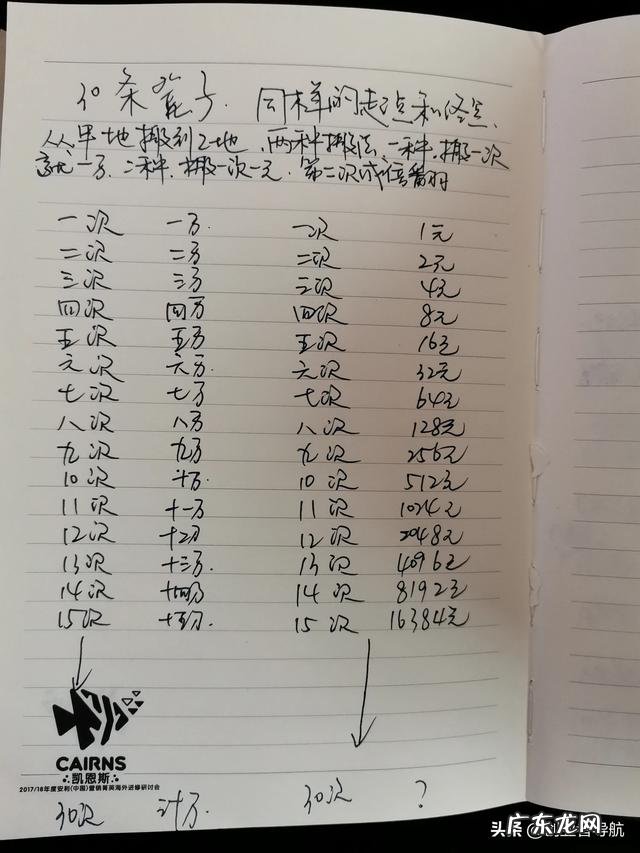 30条凳子. 同样的起点和终点、
从甲地搬到乙地、两种搬法、一种.搬一次
就一万、二种.搬一次一元.第二次成倍番的
一次 一万. 一次 1元
二次 二万 二次 2元
三次 三万 三次 4元
四次 四万 四次 8元
五次 五万 五次 16元
六次 六万. 六次 32元
七次 七万 七次 64元
八次 八万 八次 128元
九次 九万 九次 256元
10次 十万 10次 512元
11次 十一万 11次 1024元
12次 十二万 12次 2048元
13次 十三万. 13次 4096元
14次 十四万 14次 8192元
15次 十五万. 15次 16384元
CAIRNS
·凯恩斯·
2017/18年度安利(中国)营销菁英海外进修研讨会
30次 卅万 30次 ?
头条
广东龙网
导航